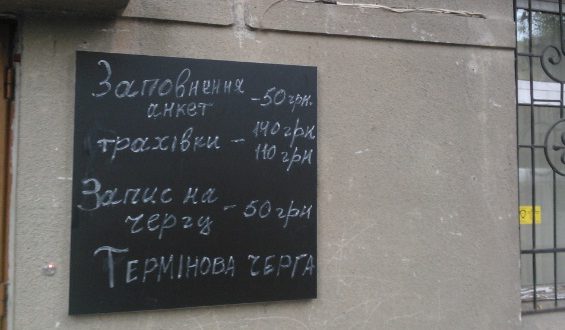 Заповнення
анкет - 50 грн.
трахівки - 140 грн
110 грн
Запис на
чергу - 50 грн
Термінова черга